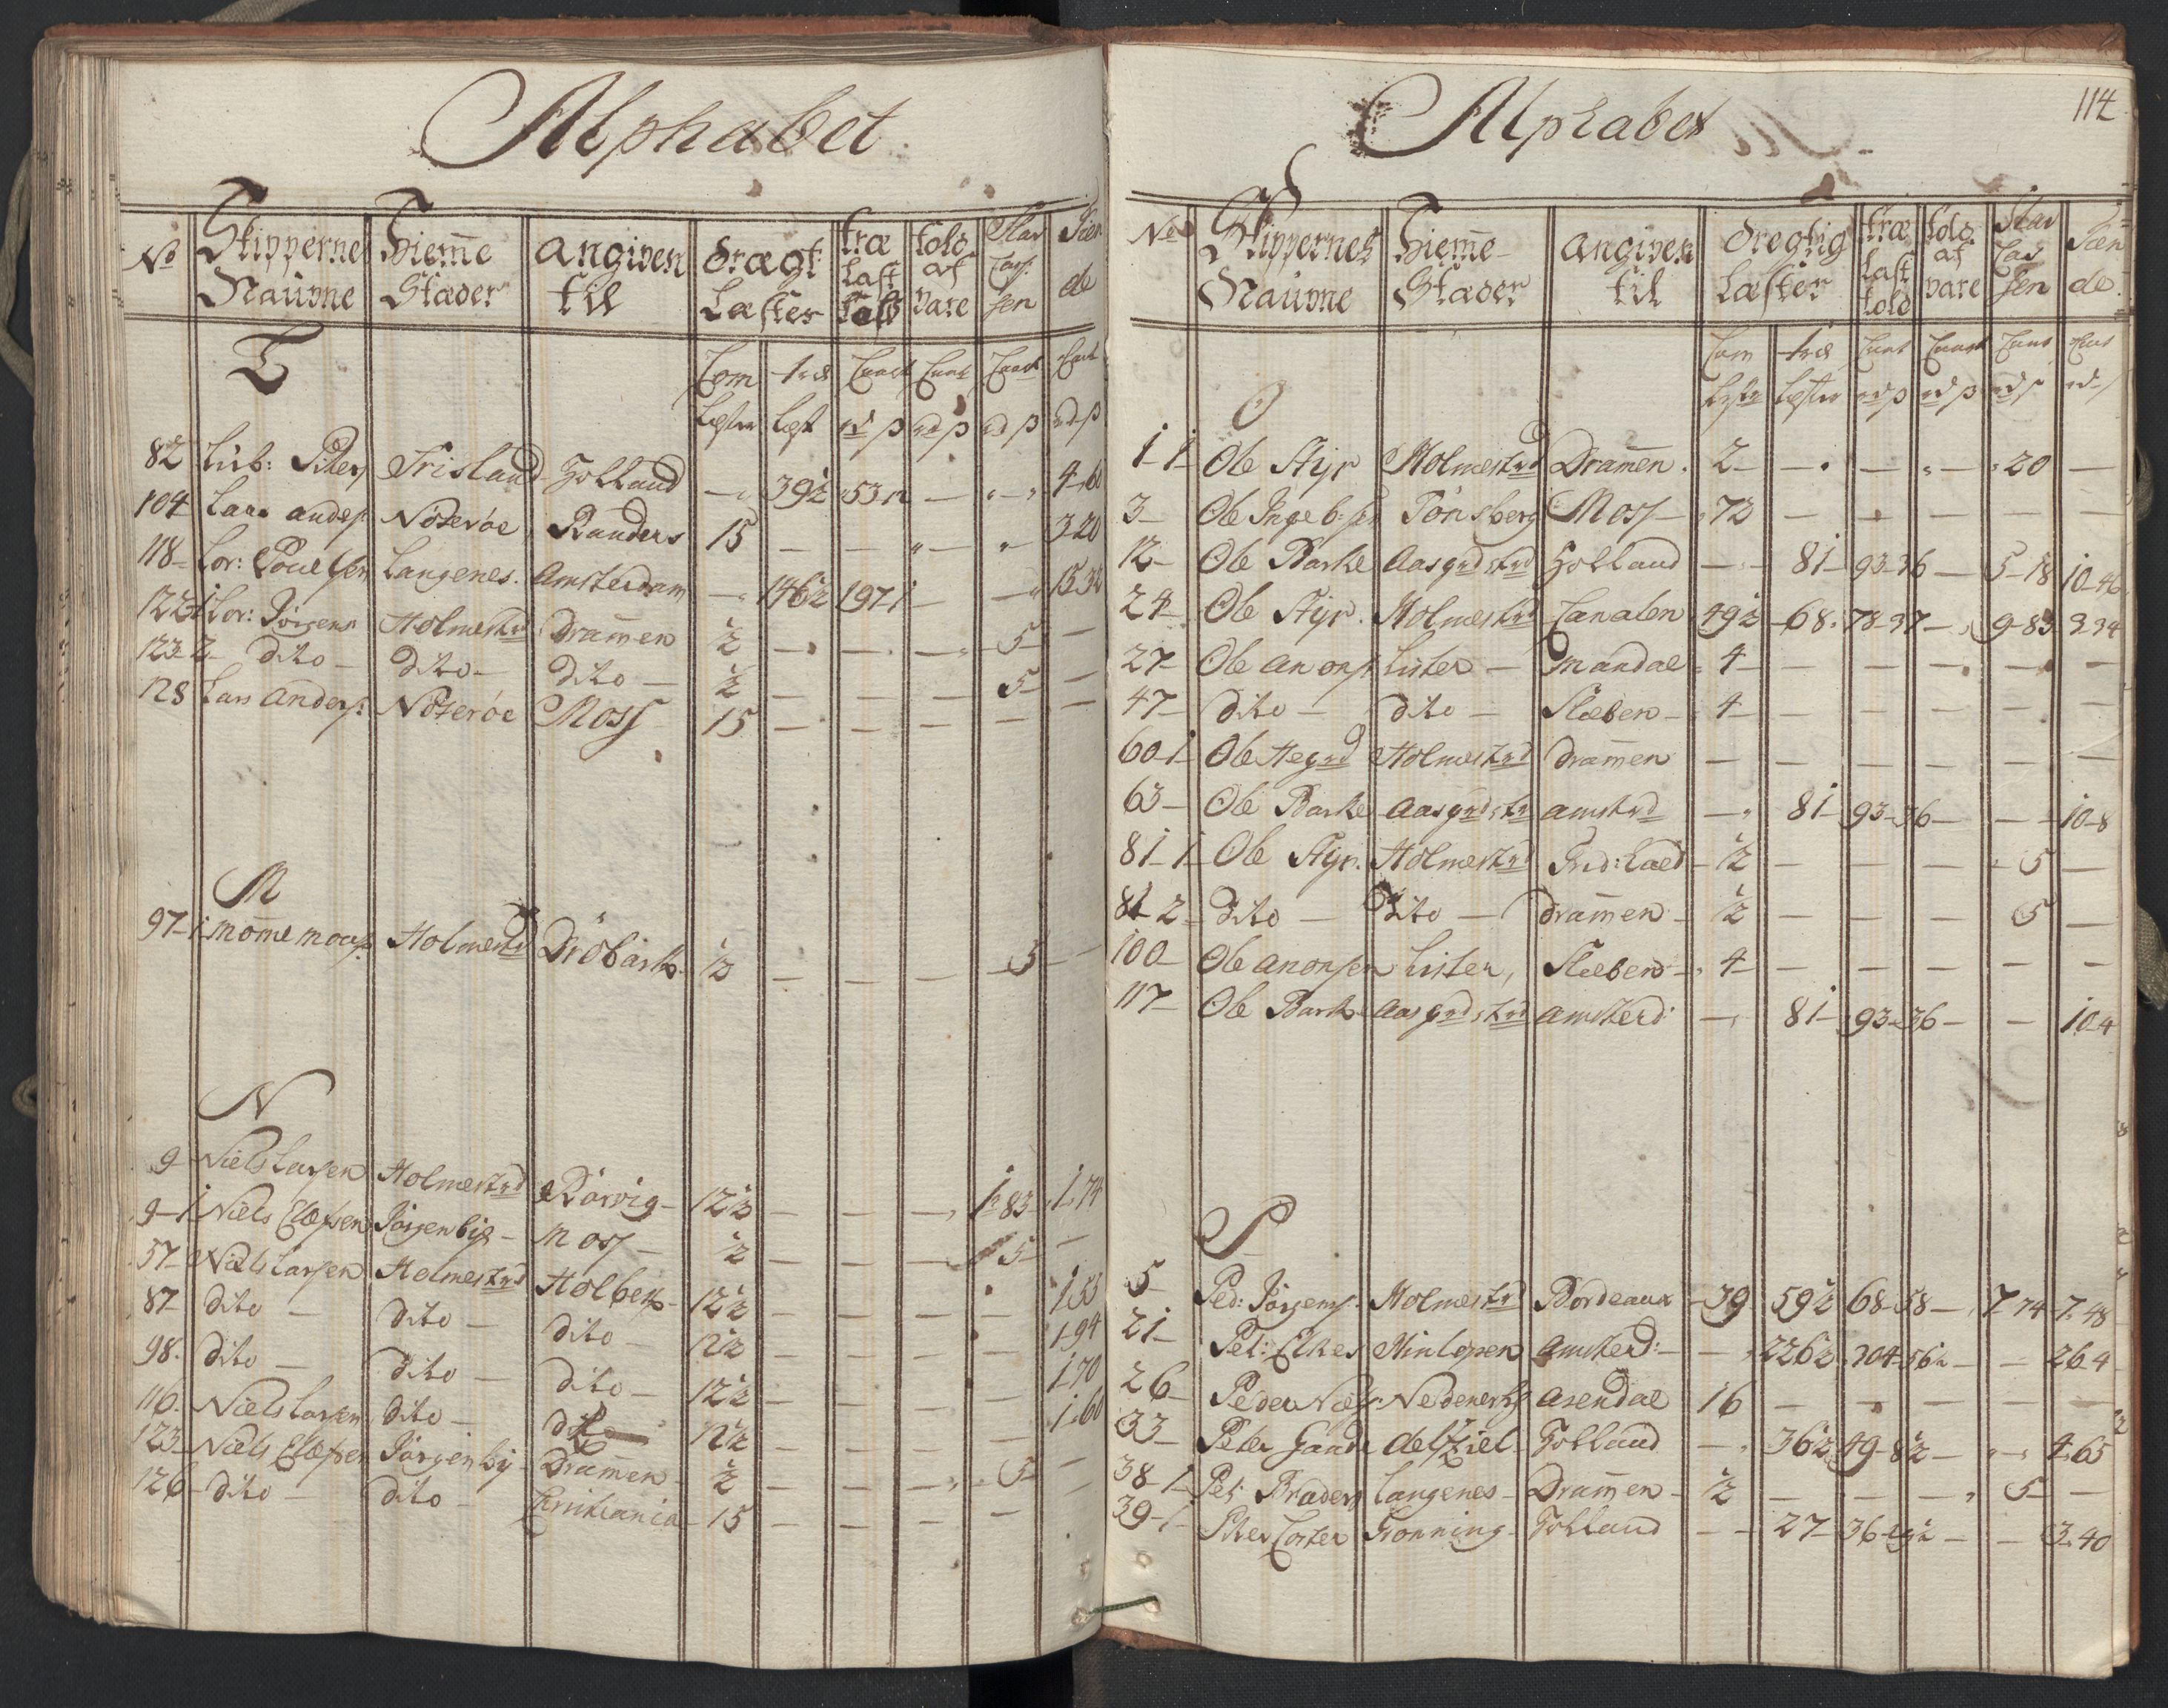 Alphabet
No Skippernes Naüvne Hiem̄e Stæder angiven til drægt: Læster træ Last Told told af vare Slav Cass: sen Tien de
L Com Læster træ Læst Cuart rd ß Cuart rd ß Cuart rd ß Cuart rd ß
82 Lüb: Piters Frisland Holland — 39½ 53 — — 4-60
104 Lars anders: Nöteröe Randers 15 — — — — 3 20
118- Lor: Poulsen Langenes. Amsterdam — 146½ 197 — —
122 1 Lor: Jörgens Holmestrd Dram̄en ½ — — — 5 —
123-2- Dito — Dito — Dito — ½ — — — 5 —
128 Lars Anders: Nöteröe Moss 15 — — — — —
M
97-1 mom̄e moass Holmestrd Dröbach ½ — — — 5 —
N
9 Niels Larsen Holmestrd Rörvig — 12½ — — — 1 83 1-74
9-1 Niels Jörgenbye — Moss — ½ — — — 5 —
57- Niels Larsen Holmestrd Holbek — 12½ — — — — 1 55
87- Dito — Dito — Dito — 12½ — — — — 1-94
98. Dito — Dito — Dito — 12½ — — — — 1 70
116. Niels Larsen Dito — Dito 12½ — — — — 1-60
123- Niels Jörgenby Dram̄en ½ — — — 5 —
126- Dito — Dito — Christiania 15 — — — —
114
Alphabet
No Skippernes Naüvne Hiem̄e Stæder angiven til dregtig Læster træ Last told told af vare Slav Cas sen Tien de
O Com Læster træ Læster Cuart rd ß Cuart rd ß Cuart rd ß Cuart rd
1-1 Ole Styr Holmestrd Dram̄en. 2 — — — 20 —
3- Ole Ingeb: sen Tönsberg Moss — 7½ — — — — —
12- Ole Barke Aasgrdstrd Holland — 81 93-36 — 5-18 10-46
24- Ole Styr. Holmestrd Canalen 49½ 68. 78-37 — 9-83 9 34
27- Ole anons: Lister — Mandal 4 — — — — —
47- Dito — Dito — Sleben — 4 — — — — —
60-1 Ole Hegrd Holmestrd Dram̄en — — — — — —
63- Ole Barke Aasgrdstrd amstrd — 81 93-36 — — 10-8
81-1- Ole Styr. Holmestrd Ind: Laed ½ — — — 5 —
84 2- Dito — Dito — Dram̄en ½ — — — 5 —
100- Ole anonsen Lister, Sleben — 4 — — — — —
117- Ole Barke Aasgrdstrd amsterd: — 81 93-36 — — 10-4
P
5- Ped: Jörgens: Holmestrd Bordeaux 39 59½ 68-58 — 7 74 7-48
21- Pet: Elkes Hinlopen Amsterd: — 226½ 304-56½ — — 26-4
26- Peder Niels: Nedenes arendal 16 — — — — —
33- Peter Gande delfziel Holland — 36½ 49-8½ — — 4-65
38-1 Pet: Braders Langenes — Dram̄en — ½ — — — 5 —
39-1- Piter Corter Gronning — Holland — 27- 36- — — 3-40